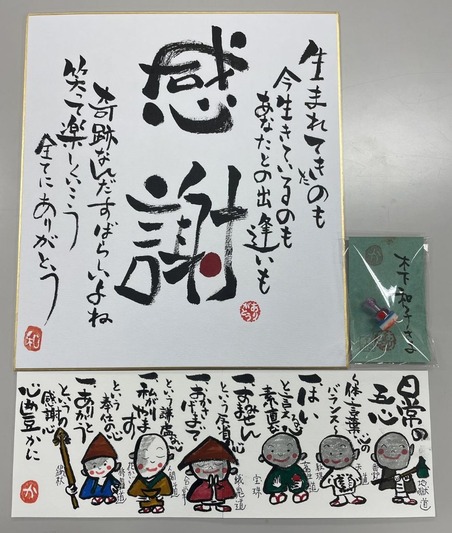 感謝
生まれてきたのも
今生きているのも
あなたとの出逢いも
奇跡なんだすばらしいよね
笑って楽しくいこう
全てにありがとう
ありがとう
日常の
五心
体言葉心の
バランス
一はい
と言える
素直な心
一すみません
という反省の心
一おかげさまで
という謙虚な心
一私がします
という奉仕の心
一ありがとう
という感謝の心
心豊かに
地獄道
天道
宝珠
餓鬼道
人間道